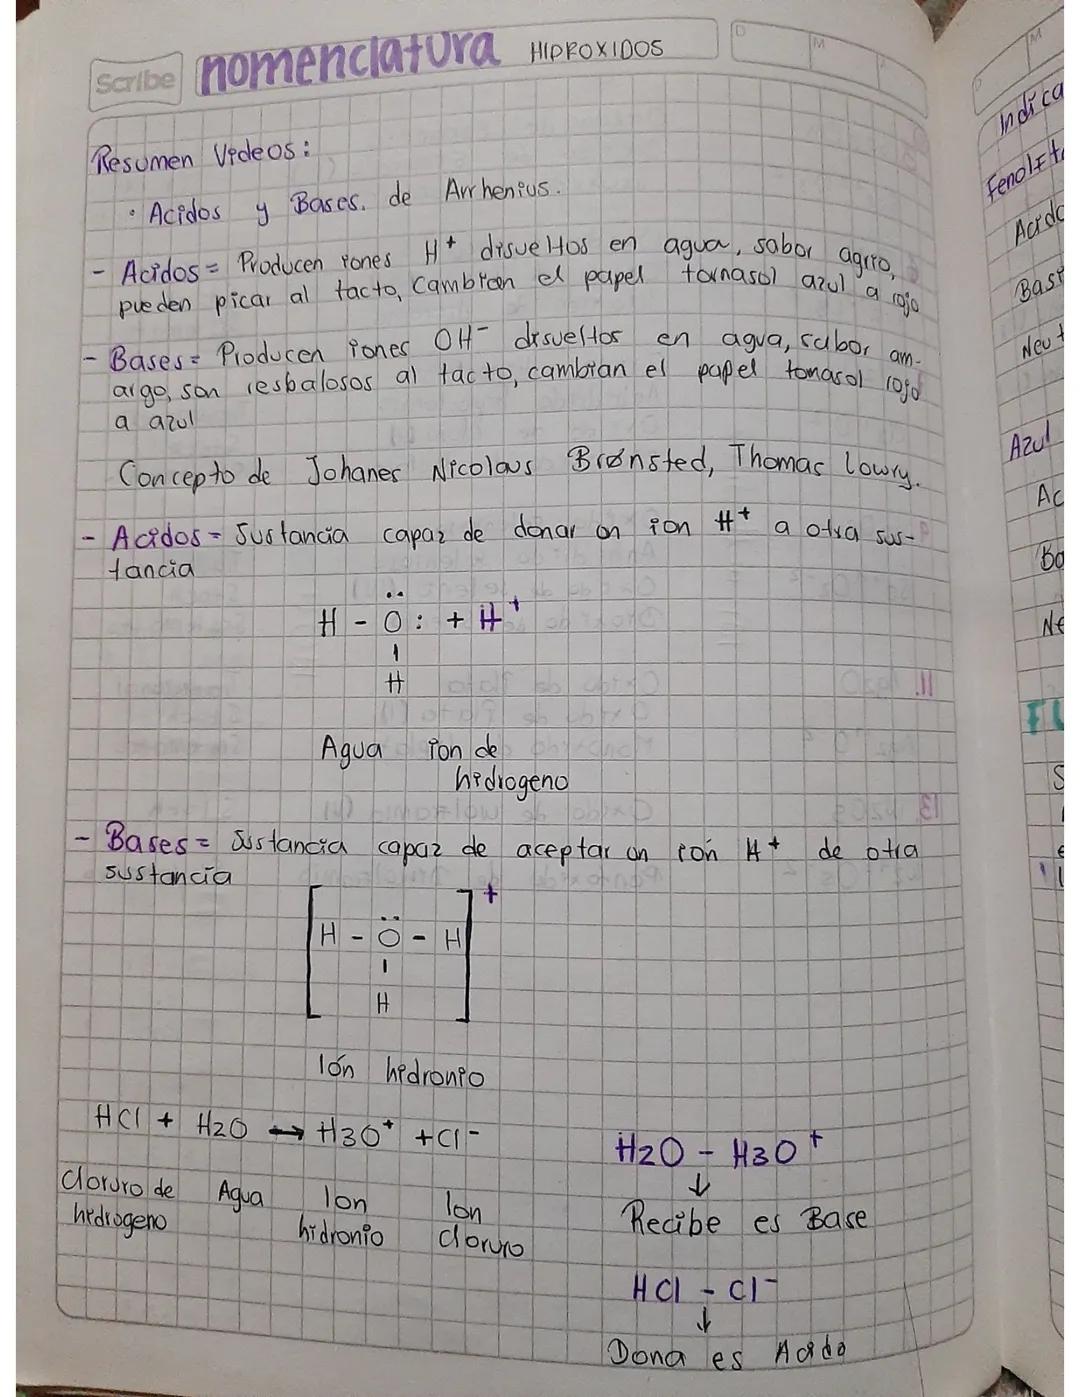 Scribe nomenclatura HIDROXIDOS
D M A
Resumen Videos:
• Acidos y Bases. de Arrhenius.
- Acidos = Producen iones H+ disueltos en agua, sabor agrio,
pueden picar al tacto, Cambian el papel tornasol azul a rojo
- Bases = Producen iones OH- disueltos en agua, sabor am-
argo, son resbalosos al tacto, cambian el papel tornasol rojo
a azul
Concepto de Johanes Nicolaus Brønsted, Thomas Lowry.
- Acidos = Sustancia capaz de donar un ion H+ a otra sus-
tancia
H - O : + H+
H
Agua ion de
hidrogeno
- Bases = Sustancia capaz de aceptar un ión H+ de otra
sustancia
[H - O - H]+
H
Ión hidronio
HCl + H2O → H3O+ + Cl-
Cloruro de Agua Ion Ion
hidrogeno hidronio cloruro
H2O - H3O+
↓
Recibe es Base
HCl - Cl-
↓
Dona es Acido
M
Indica
Fenolft
Acido
Basi
Neut
Azul
Ac
Ba
Ne